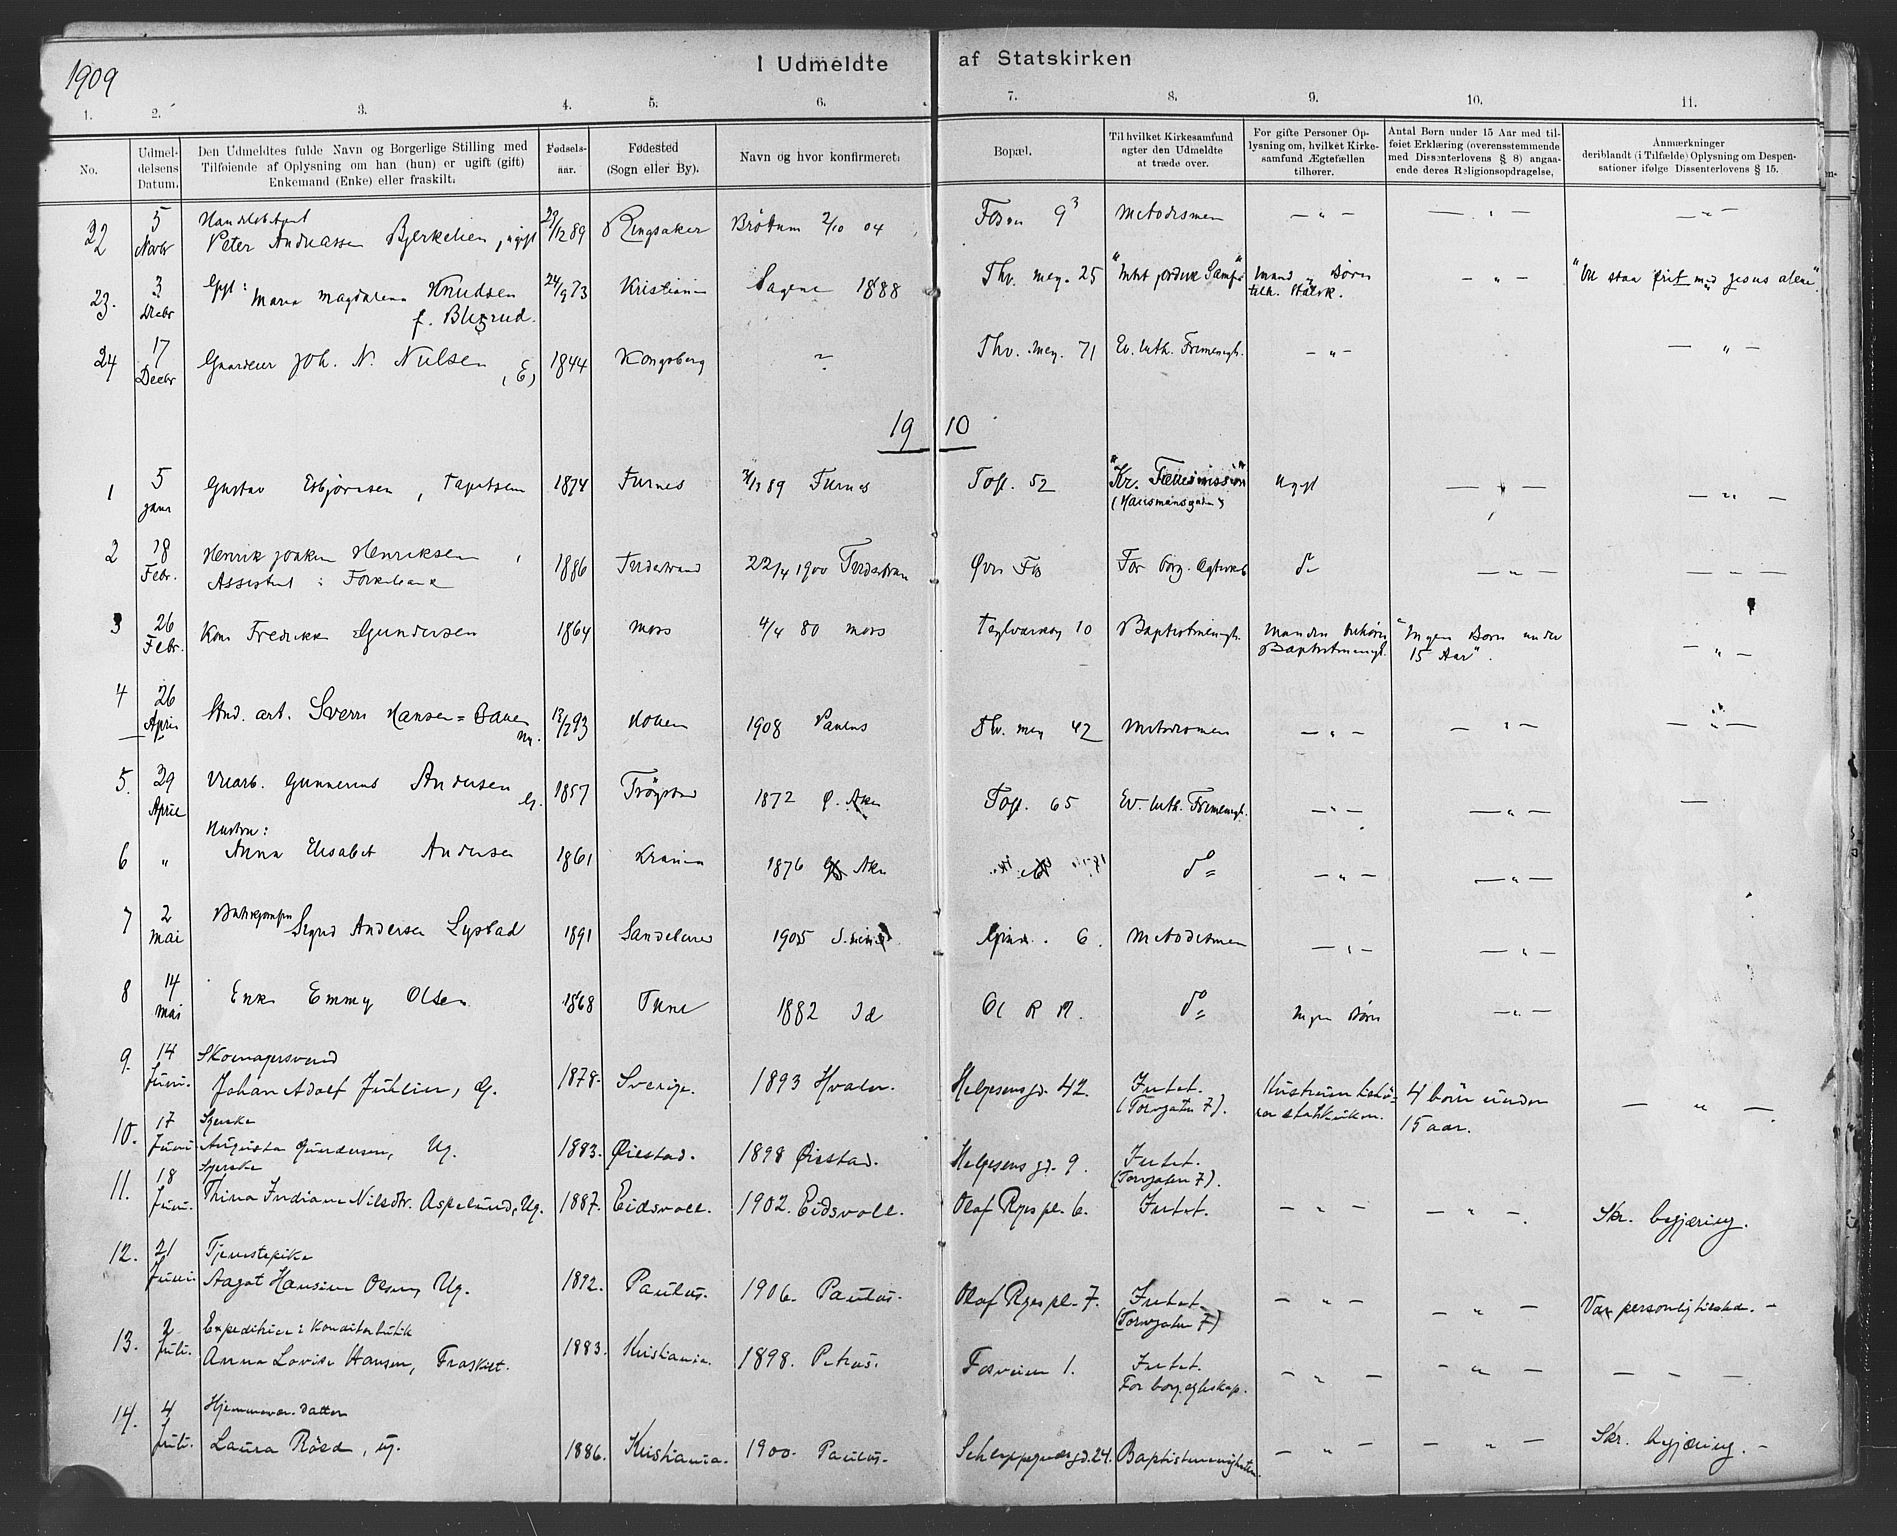 1909
I Udmeldte af Statskirken
1. 2. 3. 4. 5. 6. 7. 8. 9. 10. 11.
No.
Udmel-
delsens
Datum.
Den Udmeldtes fulde Navn og Borgerlige Stilling med
Tilføiende af Oplysning om han (hun) er ugift (gift)
Enkemand (Enke) eller fraskilt.
Fødsels-
aar.
Fødested
(Sogn eller By).
Navn og hvor konfirmeret.
Bopæl.
Til hvilket Kirkesamfund
agter den Udmeldte
at træde over.
For gifte Personer Op-
lysning om, hvilket Kirke-
samfund Ægtefællen
tilhører.
Antal Børn under 15 Aar med til-
føiet Erklæring (overensstemmende
med Dissenterlovens § 8) angaa-
ende deres Religionsopdragelse.
Anmærkninger
deriblandt (i Tilfælde) Oplysning om Despen-
sationer ifølge Dissenterlovens § 15.
22 5 Novbr
Peter Andreassen Bjerkelien, ugift 29/12 89 Ringsaker Brøttum 2/10 04 Fosvn 9 Metodismen — " — — " — — " —
23. 3 Decbr Gift: Maria Magdalena Knudsen 24/9 73 Kristiania Sagene 1888 Thv. mey. 25
f. Blixrud.
Mand og Børn
tilh. Statsk.
— " — "Vil staa frit med Jesus alene".
24 17 Decbr Gaardeier Joh. N. Nielsen (E) 1844 Kongsberg Thv. Mey. 71 Ev. luth. Frimenigh. — " — — " —
1910
1 5 Janr Gustav Esbjørnsen, Tapetsern 1874 Furnes 89 Furnes Toft. 52 "Kr. Fællesmission" Ugift — " — — " —
(Hausmansgaden)
2 18 Febr. Henrik Joakim Henriksen, 1886 Tvedestrand 22/4 1900 Tvedestran Øvre Fos For borg. Ægteskb do — " — — " —
Assistent i Folkebank
3 26 Febr. Kone Fredrikke Gundersen 1864 Moss 4/4 80 Moss Teglverksg 10 Baptistmenigh. Manden tilhører "Ingen Børn under — " —
Baptistmenigh. 15 Aar".
4 26 April Stud. art. Sverre Hansen=Bauer 93 1908 Paulus Th. mey 42 Metodismen — " — — " — — " —
5. 29 April Gunnerius Andersen G. 1857 Trøgstad 1872 Ø. Aker Toft. 65 Ev. luth. Frimenigh. — " — — " — —
6 " Hustru:
Anna Elisabet Andersen 1861 Krania 1876 Aker do — " — — " —
7 2 Mai Butikjomfru Sigrid Andersen Lystad 1891 Sandeherred 1905 Grünr. 6. Metodismen — " — — " —
8 14 Mai Enke Emmy Olsen 1868 Tune 1882 Id Ol R Pl. do Ingen Børn — " —
9. 14 Juni. Skomagersvend
Johan Adolf Juhlin, G. 1878. Sverige. 1893 Hvaler. Helgesens gd. 42. Intet. Hustruen tilhø= 4 børn under — " —
(Torvgaten 7). rer statskirken. 15 aar.
10. 17 Juni Syerske
Augusta Gundersen, Ug. 1883. Øiestad. 1898 Øiestad. Helgesens gd. 9. Intet.
(Torvgaten 7).
11. 18 Juni. Syerske
Thina Indiane Nilsdtr. Aspelund, Ug. 1887. Eidsvoll. 1902. Eidsvoll. Olaf Ryes pl. 6. Intet. — " — — " — Skr. begjæring.
12. 21 Juni Tjenestepike
Aagot Hansine Olsen, Ug. 1892. Paulus. 1906. Paulus. Olaf Ryes pl. 7. Intet. — " — — " — Var personlig tilsted. —
(Torvgaten 7)
13. 2 Juli. Expeditrice i Konditorbutik
Anna Lovise Hansen, Fraskilt. 1883. Kristiania. 1898. Petrus. Fosveien 1. Intet. — " — — " — — — —
For borg. egteskap.
14. 4 Juli. Hjemmevær. Datter
Laura Røed, ug. 1886. Kristiania. 1900. Paulus. Schleppegrelsgd. 24. Baptistmenigheten. — " — — " — Skr. begjæring. —